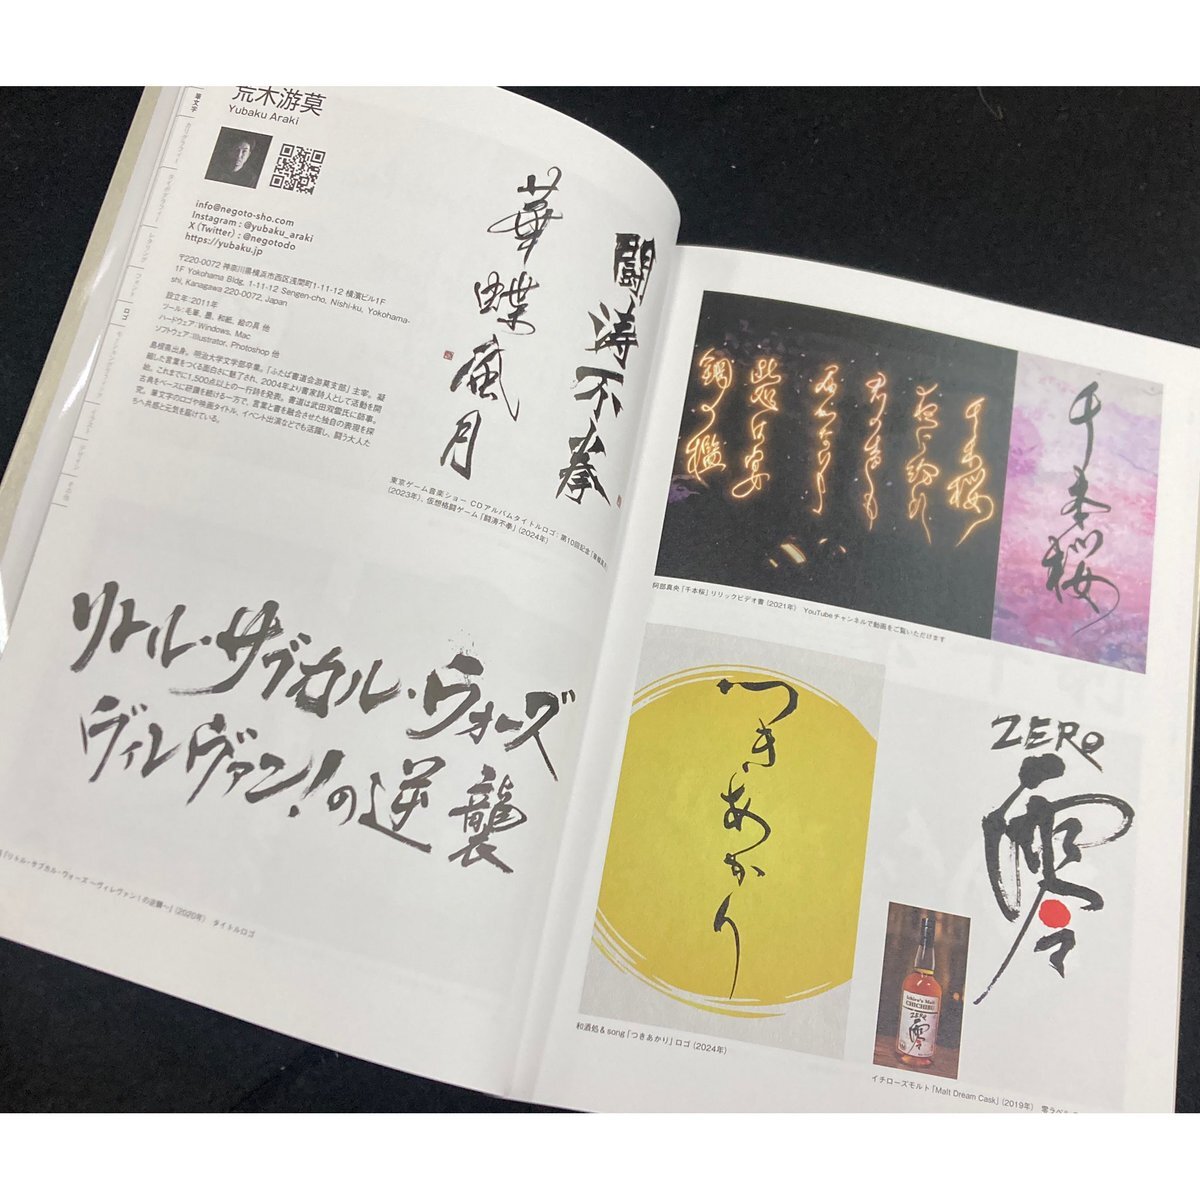 荒木游莫
Yubaku Araki
info@negoto-sho.com
Instagram : @yubaku_araki
X (Twitter) : @negotodo
https://yubaku.jp
〒220-0072 神奈川県横浜市西区浅間町1-11-12 横濱ビル1F
1F Yokohama Bldg. 1-11-12 Sengen-cho, Nishi-ku, Yokohama-
shi, Kanagawa 220-0072, Japan
設立年:2011年
ツール:毛筆、墨、和紙、絵の具 他
ハードウェア:Windows, Mac
ソフトウェア:Illustrator, Photoshop 他
島根県出身。明治大学文学部卒業。「ふたば書道会游莫支部」主宰。凝
縮した言葉をつくる面白さに魅了され、2004年より書家詩人として活動を開
始。これまでに1,500点以上の一行詩を発表。書道は武田双雲氏に師事。
古典をベースに研鑽を続ける一方で、言葉と書を融合させた独自の表現を探
究。筆文字のロゴや映画タイトル、イベント出演などでも活躍し、闘う大人た
ちへ共感と元気を届けている。
筆文字
カリグラフィー
タイポグラフィ
レタリング
フォント
ロゴ
華蝶風月
闘涛不拳
東京ゲーム音楽ショー CDアルバムタイトルロゴ: 第10回記念
(2023年)、仮想格闘ゲーム「闘涛不拳」(2024年)
リトル・サブカル・ウォーズ
ヴィレヴァン!の逆襲
「リトル・サブカル・ウォーズ ～ヴィレヴァン!の逆襲～」(2020年) タイトルロゴ
千本桜
夜に紛れ
君の声も
届かないよ
此処は宴
鋼の檻
千本桜
阿部真央「千本桜」リリックビデオ書 (2021年) YouTubeチャンネルで動画をご覧いただけます
つきあかり
和酒処 & song「つきあかり」ロゴ (2024年)
ZERO
零
Ichiro's Malt
CHICHIBU
ZERO
零
イチローズモルト「Malt Dream Cask」(2019年) 零ラベル